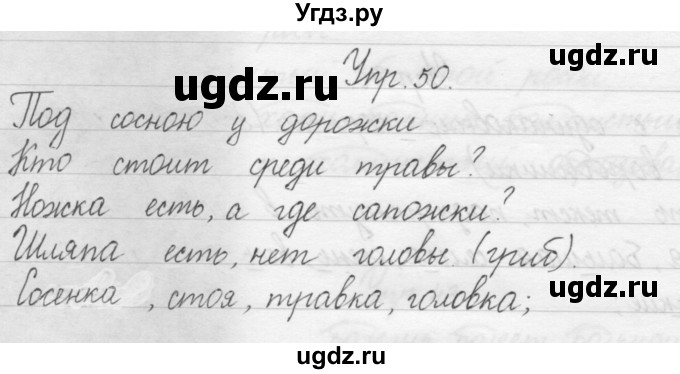 Угдз.ру
ugdz.ru
ugdz.ru
Упр. 50.
Под сосною у дорожки
Кто стоит среди травы?
ugdz.ru
Ножка есть, а где сапожки?
Шляпа есть, нет головы. (гриб).
Сосенка, стоя, травка, головка;
ugdz.ru
ugdz.ru